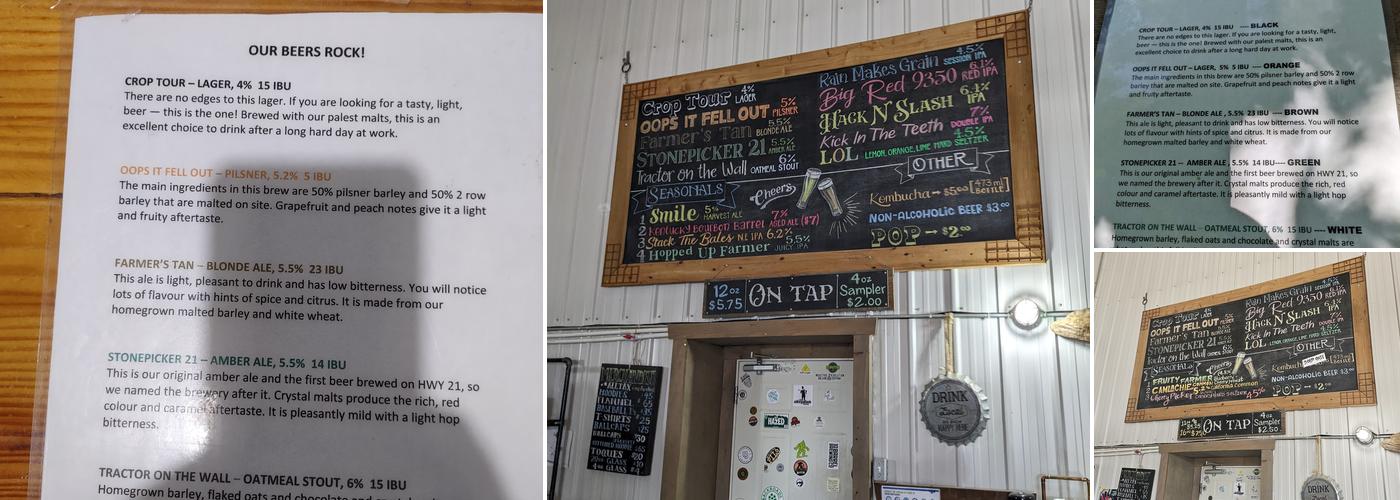 OUR BEERS ROCK!
CROP TOUR – LAGER, 4% 15 IBU
There are no edges to this lager. If you are looking for a tasty, light,
beer — this is the one! Brewed with our palest malts, this is an
excellent choice to drink after a long hard day at work.
OOPS IT FELL OUT – PILSNER, 5.2% 5 IBU
The main ingredients in this brew are 50% pilsner barley and 50% 2 row
barley that are malted on site. Grapefruit and peach notes give it a light
and fruity aftertaste.
FARMER'S TAN – BLONDE ALE, 5.5% 23 IBU
This ale is light, pleasant to drink and has low bitterness. You will notice
lots of flavour with hints of spice and citrus. It is made from our
homegrown malted barley and white wheat.
STONEPICKER 21 – AMBER ALE, 5.5% 14 IBU
This is our original amber ale and the first beer brewed on HWY 21, so
we named the brewery after it. Crystal malts produce the rich, red
colour and caramel aftertaste. It is pleasantly mild with a light hop
bitterness.
TRACTOR ON THE WALL – OATMEAL STOUT, 6% 15 IBU
Homegrown barley, flaked oats and chocolate and crystal malts are
Crop Tour 4% LAGER
OOPS IT FELL OUT 5% PILSNER
Farmer's Tan 5.5% BLONDE ALE
STONEPICKER 21 5.5% AMBER ALE
Tractor on the Wall 6% OATMEAL STOUT
SEASONALS
1 Smile 5% HARVEST ALE
2 Kentucky Bourbon Barrel 7% AGED ALE ($7)
3 Stack The Bales N.E IPA 6.2%
4 Hopped Up Farmer 5.5% JUICY IPA
Cheers
Rain Makes Grain 4.5% SESSION IPA
Big Red 9350 6.1% RED IPA
HACK N' SLASH 6.4% IPA
Kick In The Teeth 7% DOUBLE IPA
LOL LEMON, ORANGE, LIME HARD SELTZER 4.5%
OTHER
Kombucha → $5.00 [473 ml BOTTLE]
NON-ALCOHOLIC BEER $3.00
POP → $2.00
12oz $5.75
ON TAP
4oz Sampler $2.00
MERCHANDISE
HOODIES
FLANNEL 65
BASEBALL
T-SHIRTS $25
BALLCAPS
TOQUES $20
DRINK
Local
HAPPY HERE
CROP TOUR – LAGER, 4% 15 IBU ---- BLACK
There are no edges to this lager. If you are looking for a tasty, light,
beer — this is the one! Brewed with our palest malts, this is an
excellent choice to drink after a long hard day at work.
OOPS IT FELL OUT – LAGER, 5% 5 IBU ---- ORANGE
The main ingredients in this brew are 50% pilsner barley and 50% 2 row
barley that are malted on site. Grapefruit and peach notes give it a light
and fruity aftertaste.
FARMER'S TAN – BLONDE ALE, 5.5% 23 IBU ---- BROWN
This ale is light, pleasant to drink and has low bitterness. You will notice
lots of flavour with hints of spice and citrus. It is made from our
homegrown malted barley and white wheat.
STONEPICKER 21 – AMBER ALE, 5.5% 14 IBU---- GREEN
This is our original amber ale and the first beer brewed on HWY 21, so
we named the brewery after it. Crystal malts produce the rich, red
colour and caramel aftertaste. It is pleasantly mild with a light hop
bitterness.
TRACTOR ON THE WALL – OATMEAL STOUT, 6% 15 IBU ---- WHITE
Homegrown barley, flaked oats and chocolate and crystal malts are
Crop Tour 4% LAGER
OOPS IT FELL OUT 5% PILSNER
Farmer's Tan 5.5% BLONDE ALE
STONEPICKER 21
Tractor on the Wall 6%
SEASONALS
FRUITY FARMER
Cherry Picker
Rain Makes Grain 4.5%
Big Red 9350 6.1% RED IPA
HACK N' SLASH 6.4% IPA
Kick In The Teeth 7% DOUBLE IPA
LOL LEMON, ORANGE, LIME HARD SELTZER 4.5%
OTHER
Kombucha
NON-ALCOHOLIC BEER $3.00
POP → $2.00
ON TAP
4oz Sampler $2.50
DRINK
Local